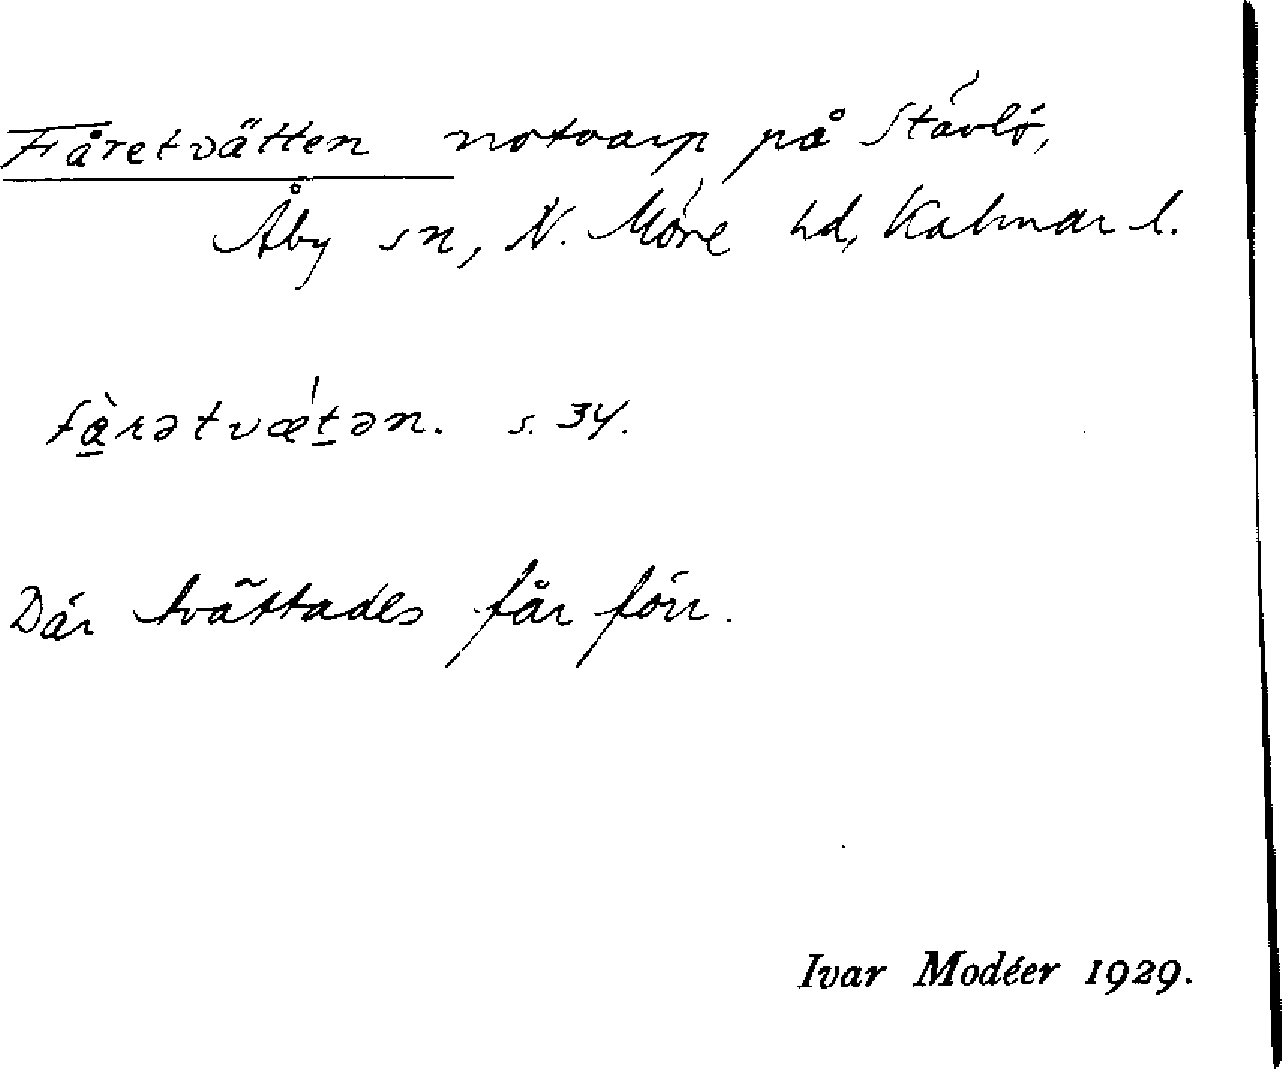 Fåretvätten notvarp på Stävlö,
Åby sn, N. Möre hd, Kalmar l.
fὰ̲rətvæ̍t̲ən. s. 34.
Där tvättades får förr.
Ivar Modéer 1929.